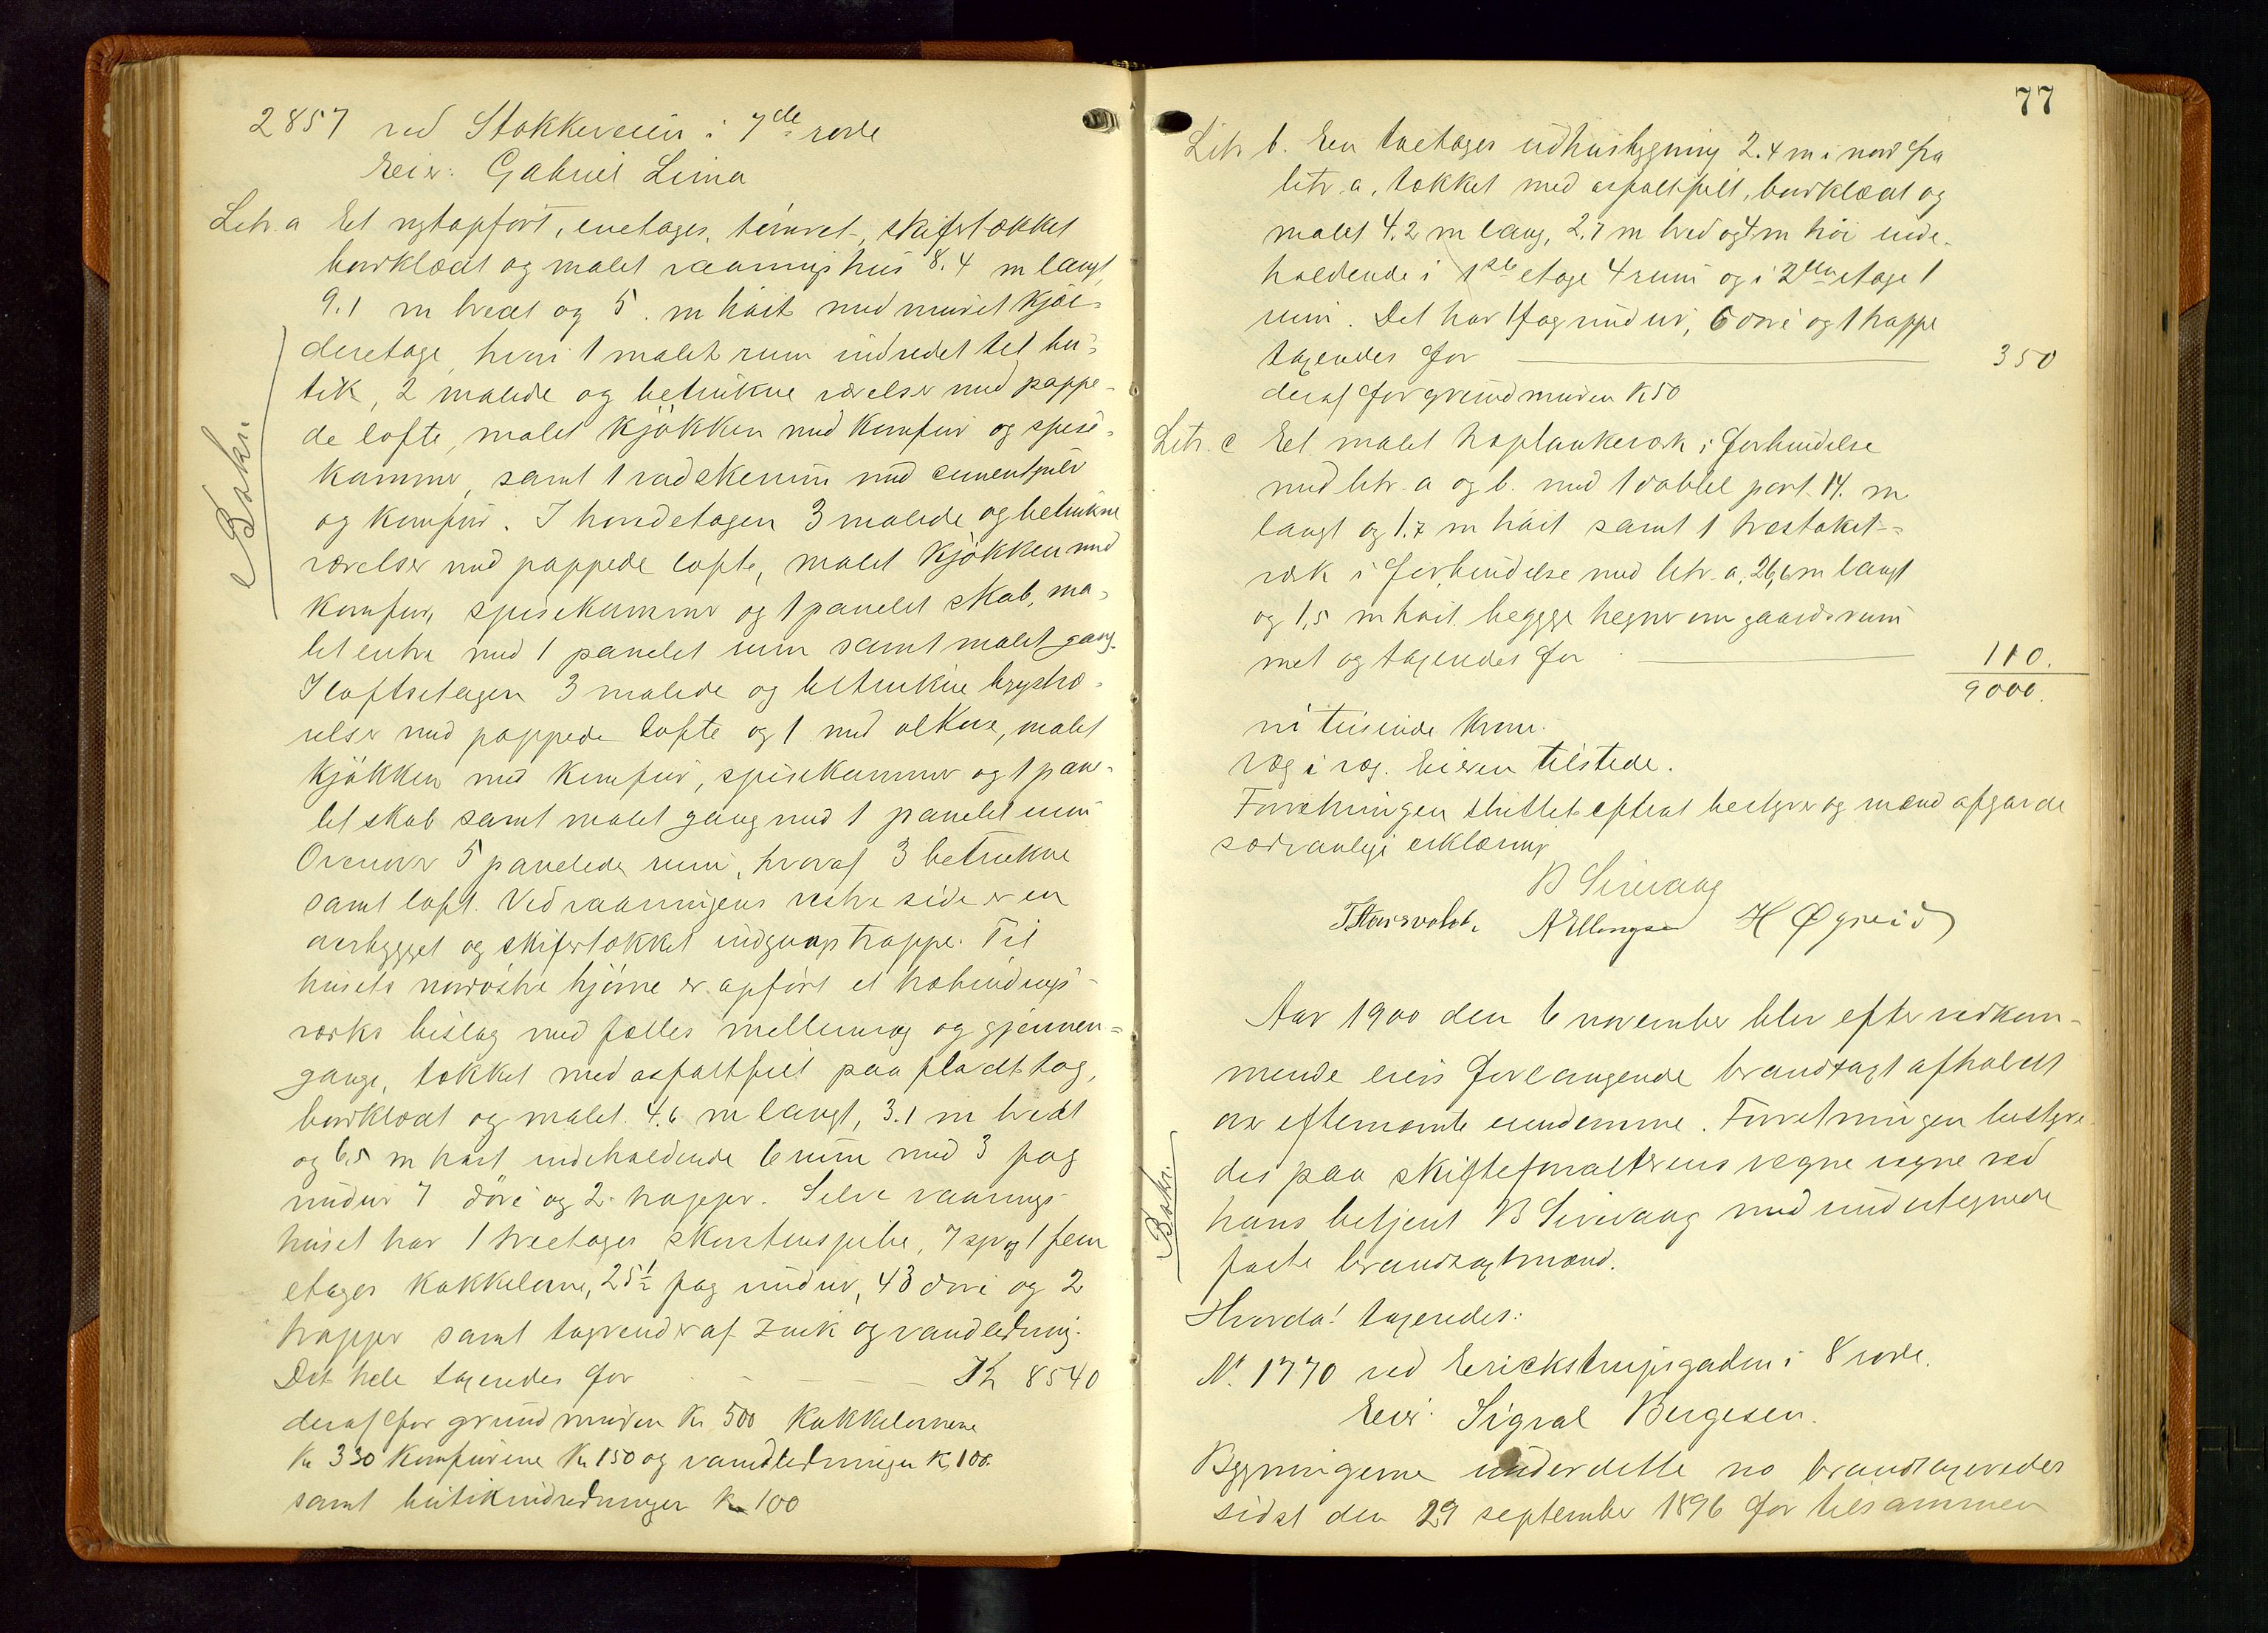 2857 ved Stokkeveien i 7de rode
Eier: Gabriel Lima
Litr. a Et nytopført, enetages, tømret, skifertækket
bordklædt og malet vaaningshus 8.4 m langt,
9.1 m bredt og 5. m høit med muret kjæl=
deretage, hvori 1 malet rum indredet til bu=
tik, 2 malede og betrukne værelser med pappe-
de lofte, malet kjøkken med komfur og spise=
kammer, samt 1 vadskerum med cementgulv
og komfur. I hovedetagen 3 malede og betrukne
værelser med pappede lofte, malet kjøkken med
komfur, spisekammer og 1 panelet skab, ma=
let entre med 1 panelet rum samt malet gang.
I loftsetagen 3 malede og betrukne brystvæ=
relser med pappede lofte og 1 med alkove, malet
kjøkken med komfur, spisekammer og 1 pane=
let skab samt malet gang med 1 panelet rum
Ovenover 5 panelede rum, hvoraf 3 betrukne
samt loft. Ved vaaningens vestre side er en
overbygget og skifertækket indgangstrappe. Til
husets nordøstre hjørne er opført et træbindings-
værks bislag med fælles mellemvæg og gjennem=
gange, tækket med asfaltfilt paa fladt tag,
bordklædt og malet. 4.6 m langt, 3.1 m bredt
og 6,5 m høit indeholdende 6 rum med 3 fag
vinduer 7 døre og 2 trapper. Selve vaanings-
huset har 1 treetages skorstenspibe, 7 sp og 1 fem
etages kakkelovne, 25 1/2 fag vinduer, 43 døre og 2
trapper samt tagrender af zink og vandledning.
Det hele taxeredes for Kr 8540
deraf for grundmuren Kr 500 kakkelovnene
Kr 330 komfurene Kr 150 og vandledningen Kr 100
samt butikindredningen Kr 100
Bokn.
77
Litr b. En toetages udhusbygning 2.4 m i nord fra
litr. a, tækket med asfaltfilt, bordklædt og
malet 4.2 m lang, 2,7 m bred og 4 m høi inde-
holdende i 1ste etage 4 rum og i 2den etage 1
rum. Det har 1 fag vinduer, 6 døre og 1 trappe
taxeredes for 350
deraf for grundmuren K 50
Litr. c Et malet træplankeværk i forbindelse
med litr. a og b. med 1 dobbel port 14. m
langt og 1.7 m høit samt 1 træstaket-=
værk i forbindelse med litr. a, 26,6 m langt
og 1,5 m høit. begge hegner om gaardsrum
met og taxeredes for 110.
9000.
ni tusinde kroner.
Væg i væg. Eieren tilstede.
Forretningen sluttet efterat bestyrer og mænd afgav de
sædvanlige erklæring
B Sirevaag
T Hausvolek. A Ellingsen H Øgreid
Aar 1900 den 6 november blev efter vedkom-
mende eiers forlangende brandtaxt afholdt
over efternævnte eiendomme. Forretningen bestyre-
des paa skifteforvalterens vegne vegne ved
hans betjent B Sirevaag med undertegnede
faste brandtaxtmænd.
Bokn.
Hvorda! taxeredes:
No. 1770 ved Erickstrupsgaden i 8 rode.
Eier: Sigval Bergesen.
Bygningerne under dette no brandtaxeredes
sidst den 29 september 1896 for tilsammen